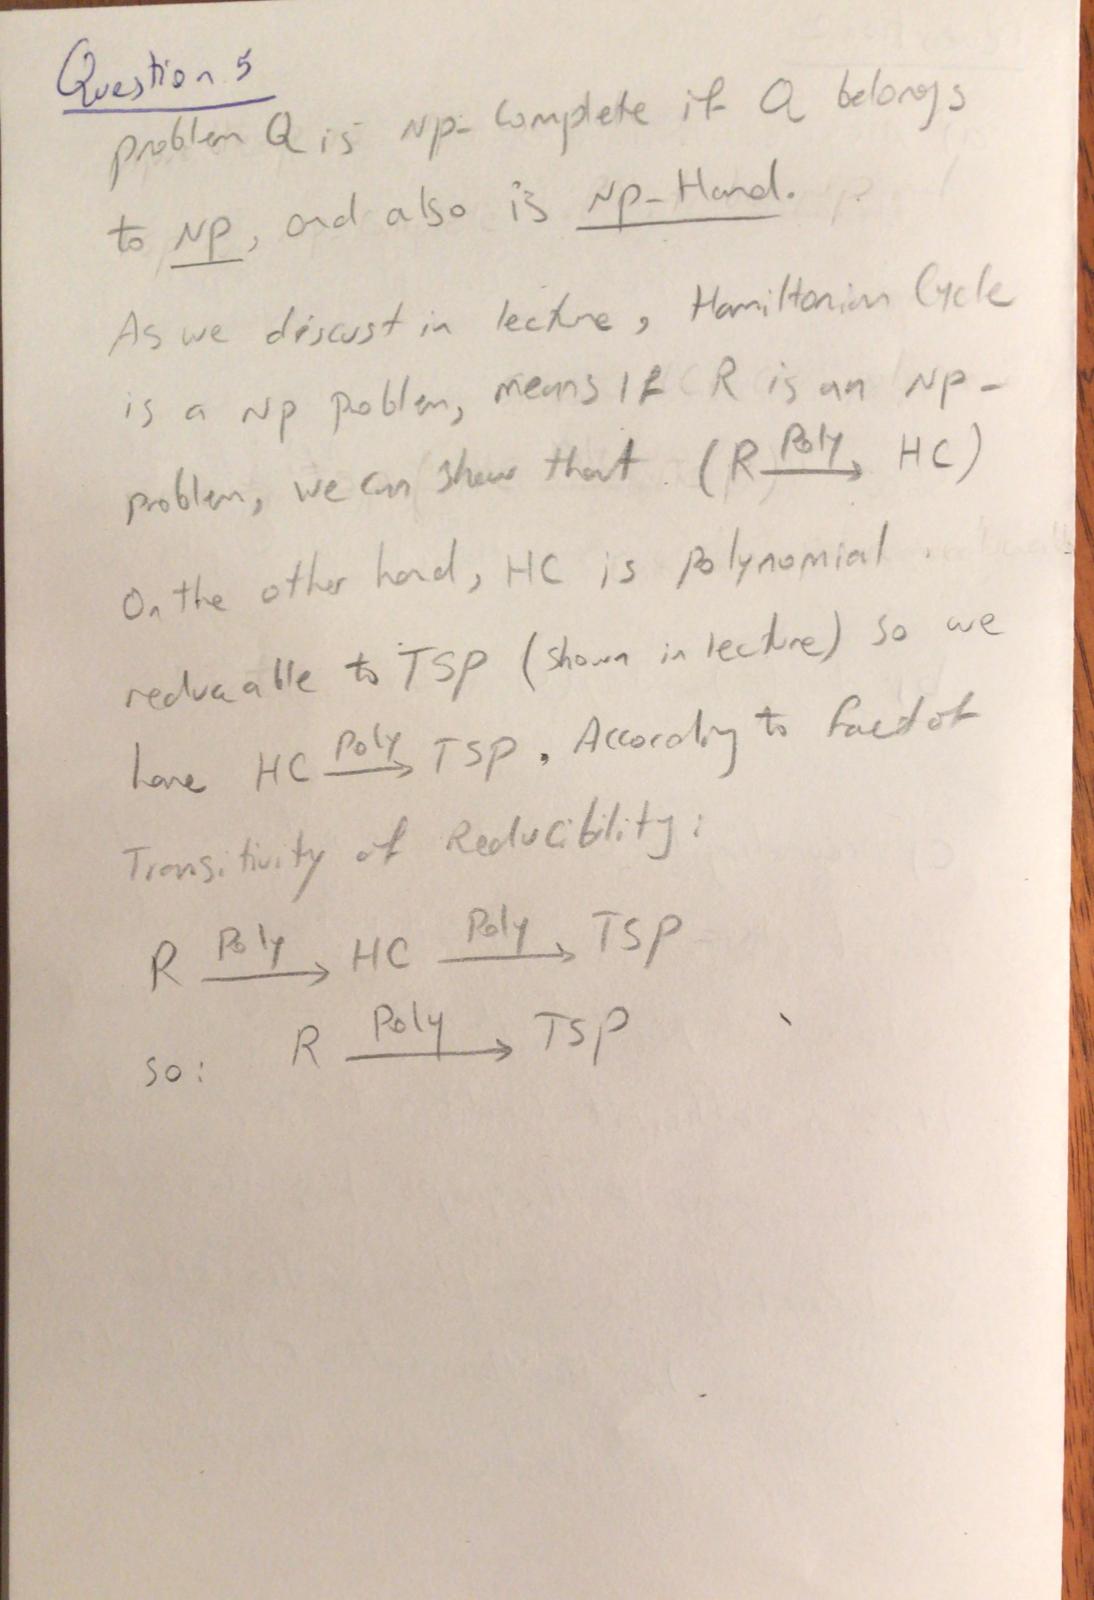 Question 5
problem Q is NP-Complete if Q belongs
to NP, and also is NP-Hard.
As we discust in lecture, Hamiltonian Cycle
is a NP problem, means If R is an NP-
problem, we can show that (R Poly→ HC)
On the other hand, HC is Polynomial
reducable to TSP (shown in lecture) so we
have HC Poly→ TSP. According to fact of
Transitivity of Reducibility:
R Poly→ HC Poly→ TSP
so: R Poly→ TSP